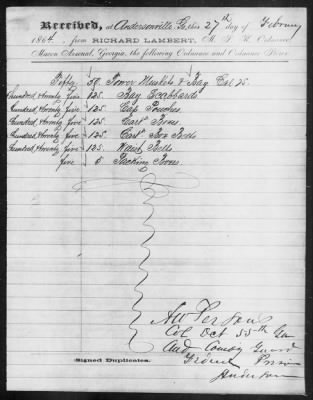 Received, at Andersonville, Ga, this 27th day of February
1864, from RICHARD LAMBERT, M. S. K. Ordnance,
Macon Arsenal, Georgia, the following Ordnance and Ordnance Stores:
Fifty 50 Tower Muskets & Bay Cal
Hundred, Twenty Five 125 Bay Scabbards
Hundred, Twenty Five 125 Cap Pouches
Hundred, Twenty Five 125 Cart. Boxes
Hundred, Twenty Five 125 Cart. Box
Hundred, Twenty Five 125 Waist Belts
Five 5 Packing Boxes
A W Persons
Col 55th Ga
And Guard
Prison
Signed Duplicates.